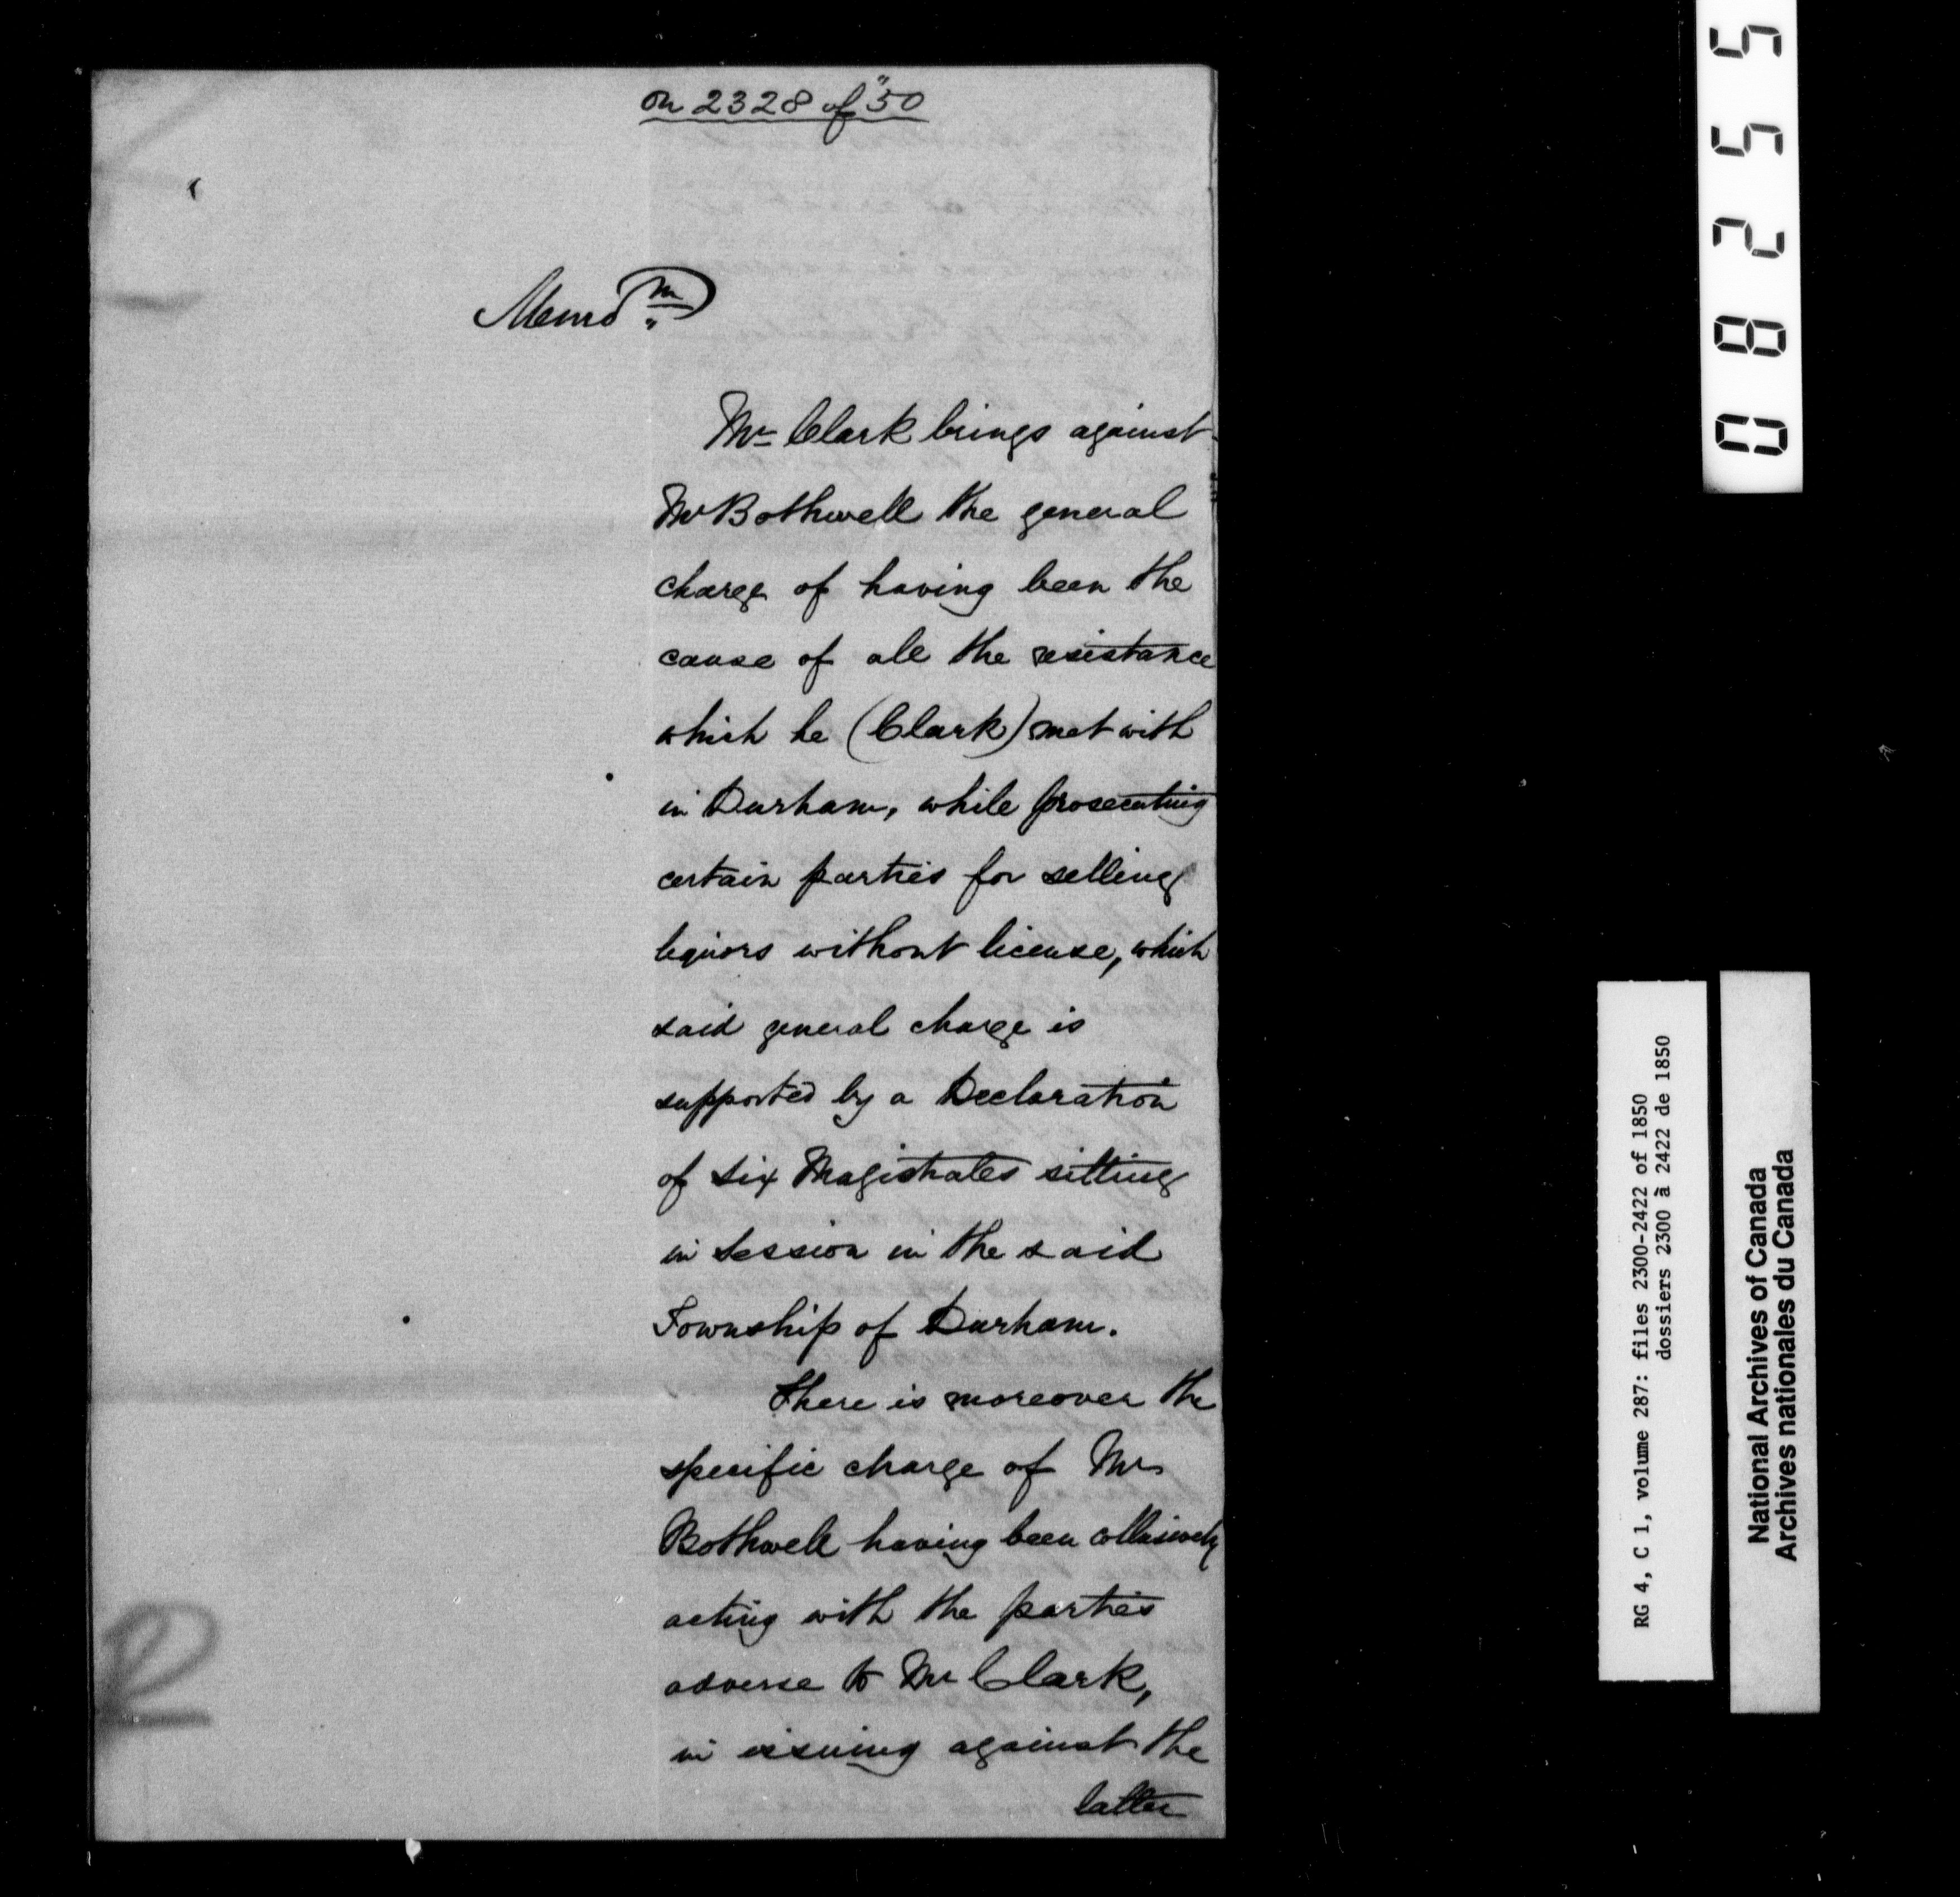 on 2328 of "50
Memo m
Mr Clark brings against
Mr Bothwell the general
charge of having been the
cause of all the resistance
which he (Clark) met with
in Durham, while prosecuting
certain parties for selling
liquors without license, which
said general charge is
supported by a Declaration
of six Magistrates sitting
in session in the said
Township of Durham.
There is moreover the
specific charge of Mr
Bothwell having been collusively
acting with the parties
adverse to Mr Clark,
in issuing against the
latter
08255
RG 4, C 1, volume 287: files 2300-2422 of 1850
dossiers 2300 à 2422 de 1850
National Archives of Canada
Archives nationales du Canada